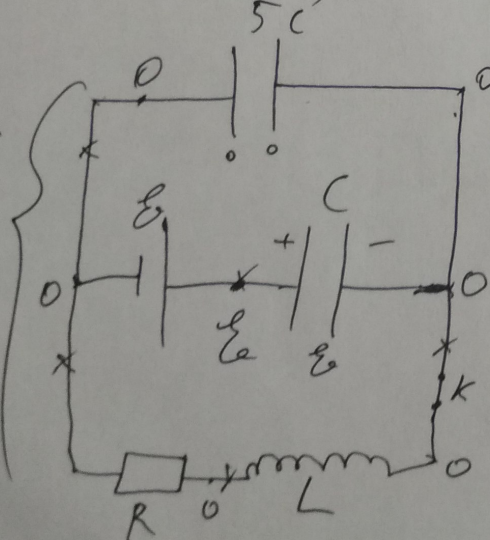 5 C
0 0
0 0
ℰ + C −
0 0
ℰ ℰ
K
0
R 0 L